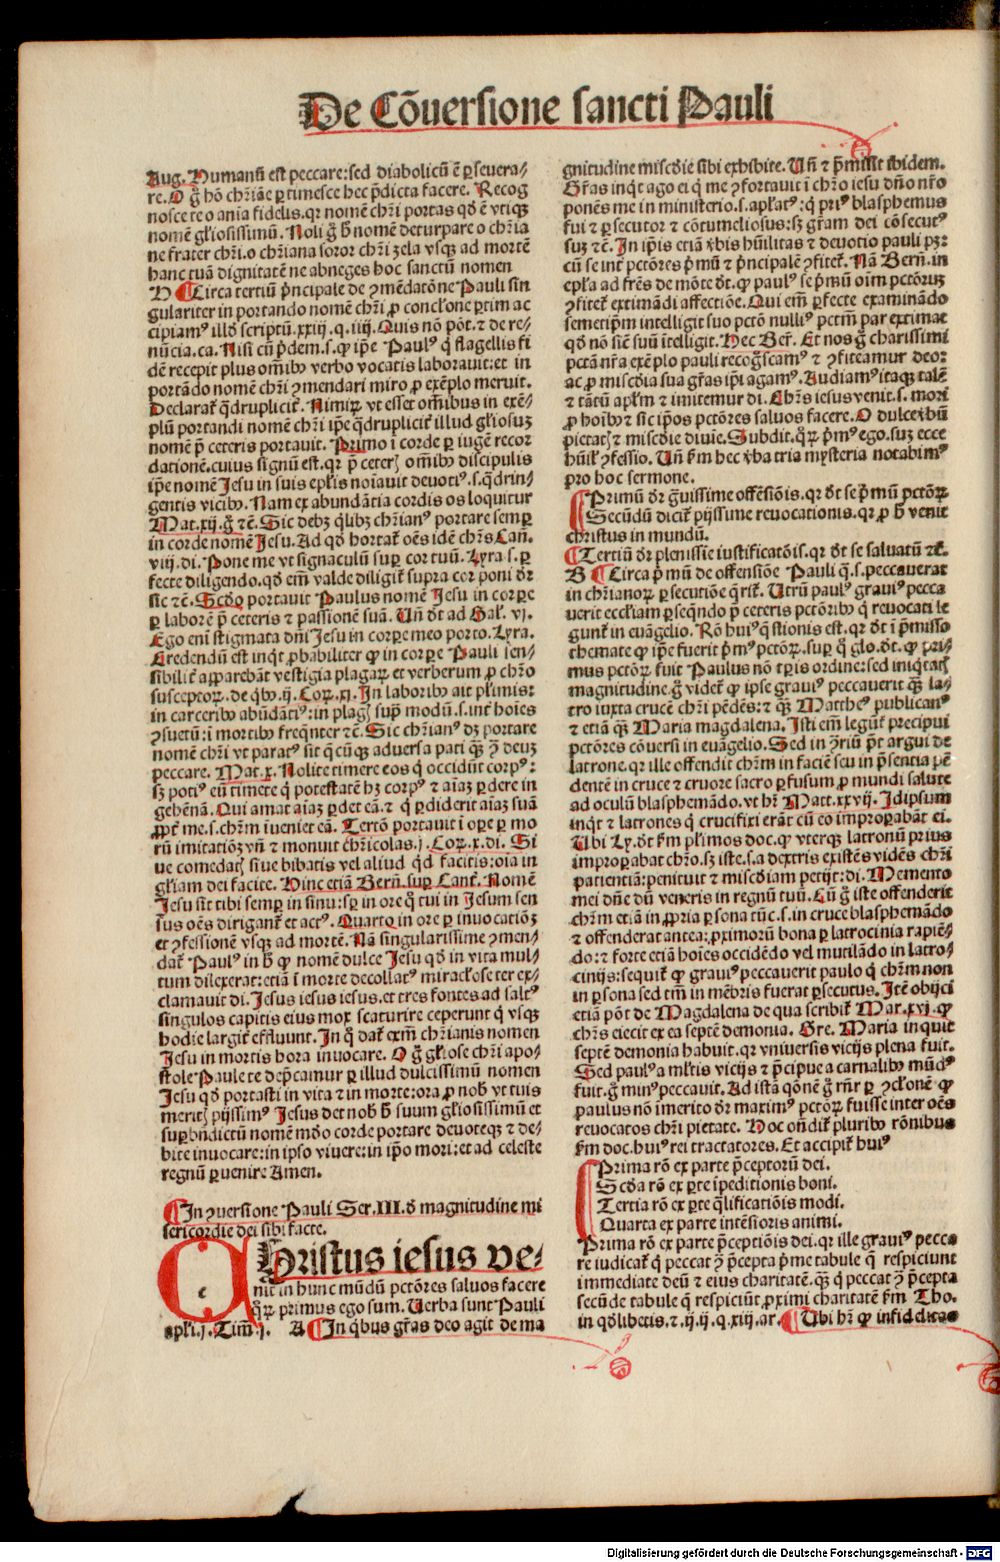 De Cõuersione sancti Pauli
Aug. Humanũ est peccare: sed diabolicũ ẽ ꝑseuera-
re. O g̃ hõ chr̃iãe ꝑtimesce hec p̃dicta facere. Recog
nosce te o anĩa fidelis. qr nomẽ chr̃i portas qđ ẽ vtiqꝫ
nomẽ gl̃iosissimũ. Noli g̃ h̃ nomẽ deturpare o chr̃ia
ne frater chr̃i. o chr̃iana soror chr̃i ꝫela vsqꝫ ad mortẽ
hanc tuã dignitatẽ ne abneges hoc sanctũ nomen
H ¶ Circa tertiũ p̃ncipale de ꝯmẽdatõne Pauli sin
gulariter in portando nomẽ chr̃i ꝓ conclone ꝑtim ac
cipiamꝰ illđ scriptũ. xxiij. q. iiij. Quis nõ põt. ⁊ de re-
nũcia. ca. Nisi cũ p̃dem. s. ꝙ ip̃e Paulꝰ q̃ flagellis fi
dẽ recepit plus om̃ibꝰ verbo vocatis laborauit: et in
portãdo nomẽ chr̃i ꝯmendari miro ꝓ exẽplo meruit.
Declarat̃ q̃druplicit̃. Nimiꝝ vt esset om̃ibus in exẽ-
plũ portandi nomẽ chr̃i ip̃e q̃druplicit̃ illud gl̃iosuꝫ
nomẽ p̃ ceteris portauit. Primo ĩ corde ꝑ iugẽ recor
dationẽ. cuius signũ est. qr p̃ ceterꝭ om̃ibꝰ discipulis
ip̃e nomẽ Jesu in suis ep̃lis noĩauit deuotiꝰ. s. q̃drin-
gentis vicibꝰ. Nam ex abundãtia cordis os loquitur
Mat. xij. g̃ ⁊c̃. Sic debꝫ q̃libꝫ chr̃ianꝰ portare semꝑ
in corde nomẽ Jesu. Ad qđ hortat̃ oẽs idẽ chr̃s Can̄.
viij. di. Pone me vt signaculũ suꝑ cor tuũ. Lyra. s. ꝑ
fecte diligendo. qđ em̃ valde diligit̃ supra cor poni dr̃
sic ⁊c̃. Scđo portauit Paulus nomẽ Jesu in corꝑe
ꝑ laborẽ p̃ ceteris ⁊ passionẽ suã. Un̄ đt ad Gal̃. vj.
Ego eni stigmata dñi Jesu in corꝑe meo porto. Lyra.
Credendũ est inqt̃ ꝓbabiliter ꝙ in corꝑe Pauli sen-
sibilit̃ apparebãt vestigia plagaꝝ et verberum ꝓ chr̃o
susceptoꝝ. de qbꝰ. ij. Coꝝ. xj. In laboribꝰ ait pl̃imis:
in carceribꝰ abũdãtiꝰ: in plagꝭ sup̃ modũ. s. int̃ hoĩes
ꝯsuetũ: ĩ mortibꝰ freq̃nter ⁊c̃. Sic chr̃ianꝰ dꝫ portare
nomẽ chr̃i vt paratꝰ sit q̃cũqꝫ aduersa pati q̃ꝫ ꝯ̃ deuꝫ
peccare. Mat. x. Nolite timere eos q̃ occidũt corpꝰ:
sꝫ potiꝰ eũ timete q̃ potestatẽ hꝫ corpꝰ ⁊ aĩaꝫ ꝑdere in
gehẽnã. Qui amat aĩaꝫ ꝑdet eã. ⁊ q̃ ꝑdiderit aĩaꝫ suã
ꝓpt̃ me. s. chr̃m ĩueniet eã. Tertõ portauit ĩ oꝑe ꝑ mo
rũ imitatiõꝫ vñ ⁊ monuit chr̃icolas. j. Coꝝ. x. di. Si
ue comedatꝭ siue bibatis vel aliud q̃d facitis: oĩa in
gl̃iam dei facite. Hinc etiã Bern̄. suꝑ Cant̃. Nomẽ
Jesu sit̃ tibi semꝑ in sinu: sꝑ in ore q̃ tui in Jesum sen
sus oẽs dirigant̃ et actꝰ. Quarto in ore ꝑ inuocatiõꝫ
et ꝯfessionẽ vsqꝫ ad mortẽ. Nã singularissime ꝯmen-
dat̃ Paulꝰ in h̃ ꝙ nomẽ dulce Jesu qđ in vita mul-
tum dilexerat: etiã ĩ morte decollatꝰ miracl̃ose ter ex-
clamauit di. Jesus iesus iesus. et tres fontes ad saltꝰ
singulos capitis eius mox scaturire ceperunt q̃ vsqꝫ
hodie largit̃ effluunt. In q̃ dat̃ exm̃ chr̃ianis nomen
Jesu in mortis hora inuocare. O g̃ gl̃iose chr̃i apo-
stole Paule te dep̃camur ꝑ illud dulcissimũ nomen
Jesu qđ portasti in vita ⁊ in morte: ora ꝓ nob̃ vt tuis
meritꝭ pijssimꝰ Jesus det nob̃ h̃ suum gl̃iosissimũ et
suꝑbn̄dictũ nomẽ mđo corde portare deuoteqꝫ ⁊ de-
bite inuocare: in ipso viuere: in ip̃o mori: et ad celeste
regnũ ꝑuenire Amen.
¶ In ꝯuersione Pauli Ser. III. đ magnitudine mi
sericordie dei sibi facte.
Christus iesus ve-
nit in hunc mũdũ pctõres saluos facere
q̃ꝝ primus ego sum. Uerba sunt Pauli
apl̃i. j. Tim̃. j. A ¶ In qbus gr̃as deo agit de ma
gnitudine misc̃die sibi exhibite. Un̄ ⁊ p̃misit ibidem.
Gr̃as inqt̃ ago ei q̃ me ꝯfortauit ĩ chr̃o iesu dño nr̃o
ponẽs me in ministerio. s. apl̃atꝰ: q̃ priꝰ blasphemus
fui ⁊ ꝑsecutor ⁊ cõtumeliosus: sꝫ gr̃am dei cõsecutꝰ
suꝫ ⁊c̃. In ip̃is etiã v̾bis hũilitas ⁊ deuotio pauli pꝫ:
cũ se int̃ pctõres p̃mũ ⁊ p̃ncipalẽ ꝯfitet̃. Nã Bern̄. in
epl̃a ad fr̃es de mõte đt. ꝙ paulꝰ se p̃mũ oĩm pctõruꝫ
ꝯfitet̃ extimãdi affectiõe. Qui em̃ ꝑfecte examinãdo
semetip̃m intelligit suo pctõ nulliꝰ pctm̃ par extimat
qđ nõ siẽ suũ ĩtelligit. Hec Ber̃. Et nos g̃ charissimi
pctã nr̃a exẽplo pauli recog̃scamꝰ ⁊ ꝯfiteamur deo:
ac ꝓ misc̃dia sua gr̃as ip̃i agamꝰ. Audiamꝰ itaqꝫ talẽ
⁊ tãtũ apl̃m ⁊ imitemur di. Chr̃s iesus venit. s. mori
ꝓ hoĩbꝰ ⁊ sic ip̃os pctõres saluos facere. O dulce v̾bũ
pietatꝭ ⁊ misc̃die diuĩe. Subdit. q̃ꝝ p̃mꝰ ego. suꝫ ecce
hũil̃ ꝯfessio. Un̄ ẜm hec v̾ba tria mysteria notabimꝰ
pro hoc sermone.
¶ Primũ dr̃ g̃uissime offẽsiõis. qr đt se p̃mũ pctõꝝ.
Secũdũ dicit̃ pijssime reuocationis. qr ꝓ h̃ venit
christus in mundũ.
¶ Tertiũ dr̃ plenissĩe iustificatõis. qr đt se saluatũ ⁊c̃.
B ¶ Circa p̃mũ de offensiõe Pauli q̃. s. peccauerat
in chr̃ianoꝝ ꝑsecutiõe q̃rit̃. Utrũ paulꝰ grauiꝰ pecca
uerit eccl̃iam ꝑseq̃ndo p̃ ceteris pctõribꝰ q̃ reuocati le
gunt̃ in euãgelio. Rõ huiꝰ q̃stionis est. qr đt ĩ p̃misso
themate ꝙ ip̃e fuerit p̃mꝰ pctõꝝ. suꝑ q̃ glo. đt. ꝙ pri-
mus pctõꝝ fuit Paulus nõ tꝑis ordine: sed iniqtatꝭ
magnitudine. g̃ videt̃ ꝙ ipse grauiꝰ peccauerit q̃ꝫ la-
tro iuxta crucẽ chr̃i pẽdẽs: ⁊ q̃ꝫ Mattheꝰ publicanꝰ
⁊ etiã q̃ꝫ Maria magdalena. Isti em̃ legũt̃ precipui
pctõres cõuersi in euãgelio. Sed in ꝯ̃riũ p̃t argui de
latrone. qr ille offendit chr̃m in faciẽ seu in p̃sentia pẽ
dentẽ in cruce ⁊ cruore sacro ꝑfusum ꝓ mundi salute
ad oculũ blasphemãdo. vt hr̃ Matt. xxvij. Idipsum
inqt̃ ⁊ latrones q̃ crucifixi erãt cũ eo improꝑabãt ei.
Ubi Ly. đt ẜm pl̃imos doc. ꝙ vterqꝫ latronũ prius
improꝑabat chr̃o. sꝫ iste. s. a dextris existẽs vidẽs chr̃i
patientiã: penituit ⁊ misc̃diam petijt: di. Memento
mei dñe dũ veneris in regnũ tuũ. Cũ g̃ iste offenderit
chr̃m etiã in ꝓpria ꝑsona tũc. s. in cruce blasphemãdo
⁊ offenderat antea: ꝓximorũ bona ꝑ latrocinia rapiẽ-
do: ⁊ forte etiã hoĩes occidẽdo vel mutilãdo in latro-
cinijs: sequit̃ ꝙ grauiꝰ peccauerit paulo q̃ chr̃m non
in ꝑsona sed tm̃ in mẽbris fuerat ꝑsecutus. Itẽ obijci
etiã põt de Magdalena de qua scribit̃ Mar. xvj. ꝙ
chr̃s eiecit ex ea septẽ demonia. Gre. Maria inquit
septẽ demonia habuit. qr vniuersis vicijs plena fuit.
Sed paulꝰ a ml̃tis vicijs ⁊ p̃cipue a carnalibꝰ mũdꝰ
fuit. g̃ minꝰ peccauit. Ad istã qõnẽ g̃ rñr ꝑ ꝯcl̃onẽ ꝙ
paulus nõ imerito dr̃ maximꝰ pctõꝝ fuisse inter oẽs
reuocatos chr̃i pietate. Hoc oñdit̃ pluribꝰ rõnibus
ẜm doc. huiꝰ rei tractatores. Et accipit̃ huiꝰ
Prima rõ ex parte p̃ceptorũ dei.
Scđa rõ ex ꝑte ĩpeditionis boni.
Tertia rõ ex ꝑte q̃lificatiõis modi.
Quarta ex parte intẽsioris animi.
Prima rõ ex parte p̃ceptiõis dei. qr ille grauiꝰ pecca
re iudicat̃ q̃ peccat ꝯ̃ p̃cepta p̃me tabule q̃ respiciunt
immediate deũ ⁊ eius charitatẽ. q̃ꝫ q̃ peccat ꝯ̃ p̃cepta
secũde tabule q̃ respiciũt ꝓximi charitatẽ ẜm Tho.
in qđlibetis. ⁊. ij. ij. q. xiij. ar. ¶ Ubi hr̃ ꝙ infidelitas
Digitalisierung gefördert durch die Deutsche Forschungsgemeinschaft - DFG